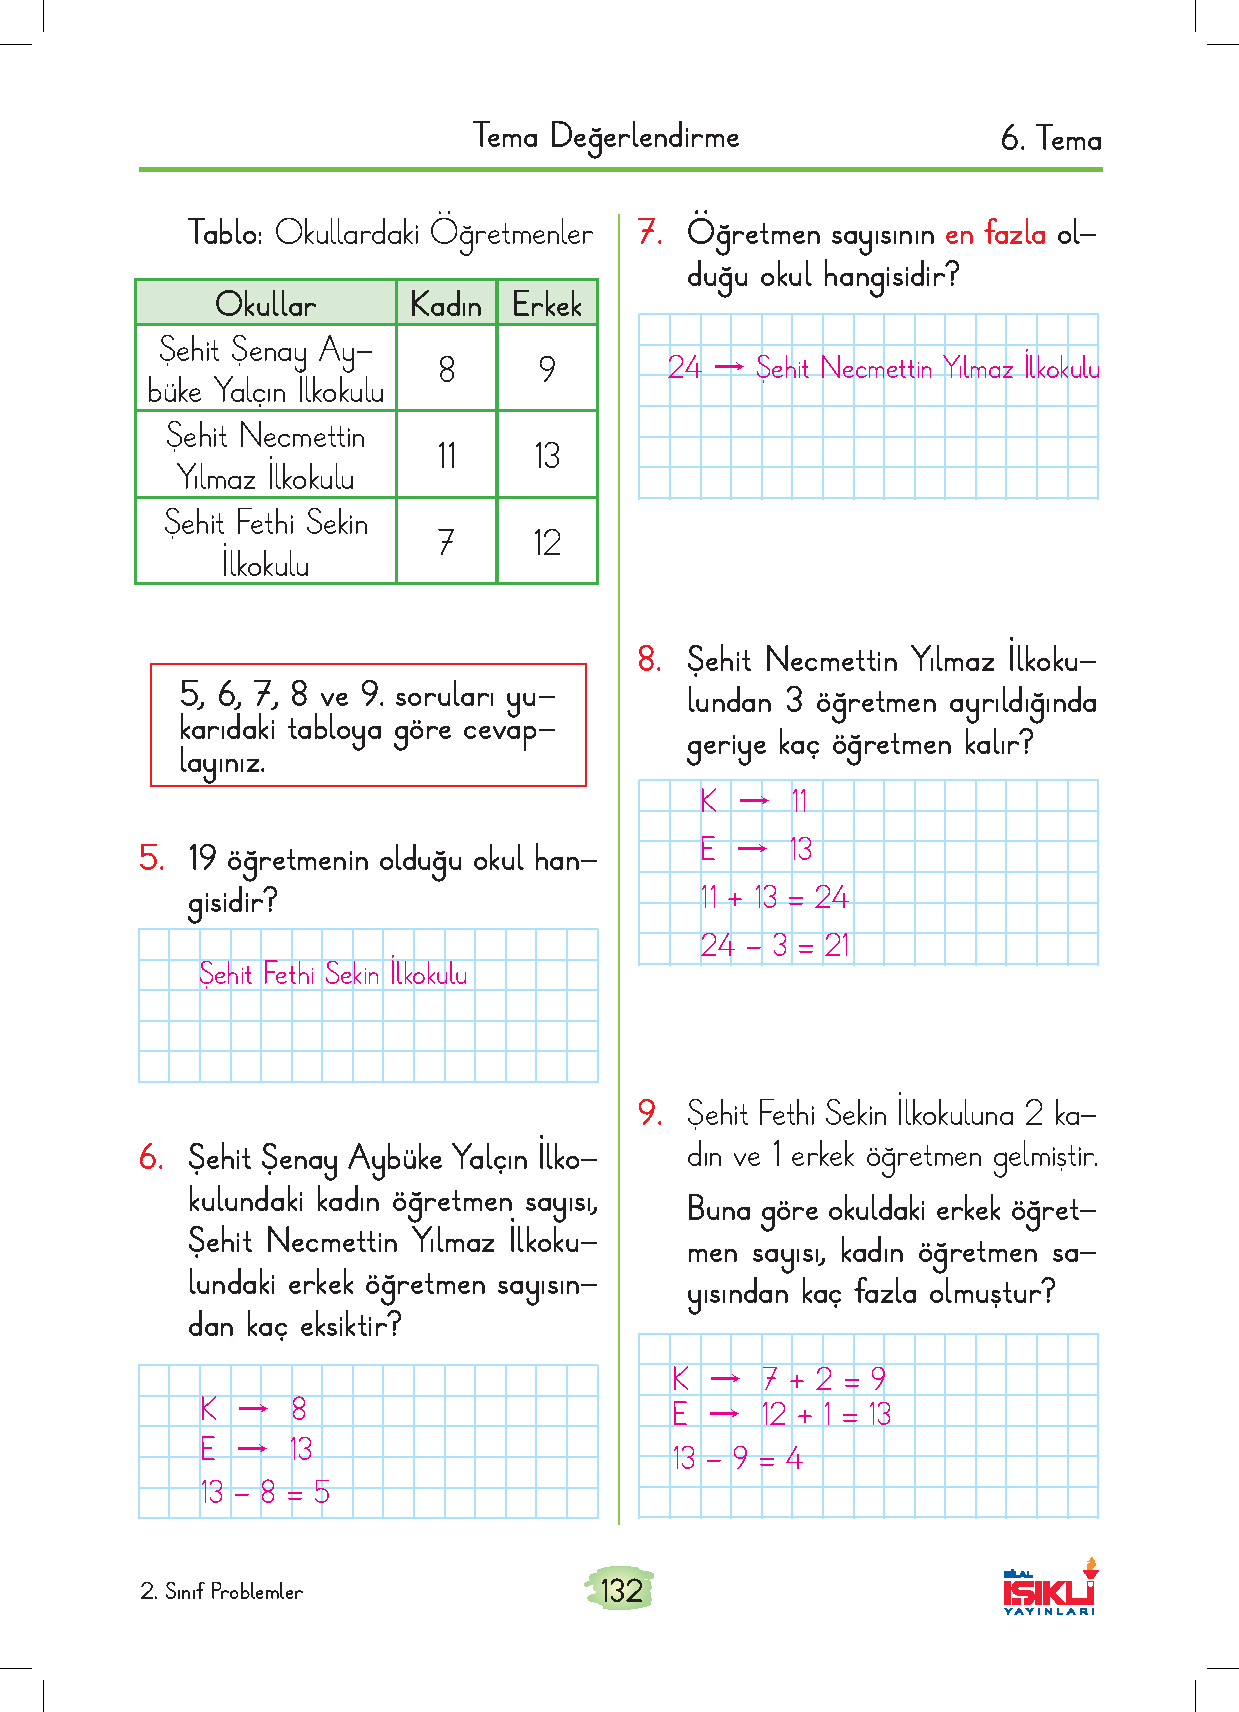 Tema Değerlendirme
6. Tema
Tablo: Okullardaki Öğretmenler
Okullar Kadın Erkek
Şehit Şenay Ay-
büke Yalçın Ilkokulu
8 9
Şehit Necmettin
Yılmaz İlkokulu
11 13
Şehit Fethi Sekin
İlkokulu
7 12
5, 6, 7, 8 ve 9. soruları yu-
karıdaki tabloya göre cevap-
layınız.
5. 19 öğretmenin olduğu okul han-
gisidir?
Şehit Fethi Sekin İlkokulu
6. Şehit Şenay Aybüke Yalçın İlko-
kulundaki kadın öğretmen sayısı,
Şehit Necmettin Yılmaz İlkoku-
lundaki erkek öğretmen sayısın-
dan kaç eksiktir?
K → 8
E → 13
13 - 8 = 5
7. Öğretmen sayısının en fazla ol-
duğu okul hangisidir?
24 → Şehit Necmettin Yılmaz İlkokulu
8. Şehit Necmettin Yılmaz İlkoku-
lundan 3 öğretmen ayrıldığında
geriye kaç öğretmen kalır?
K → 11
E → 13
11 + 13 = 24
24 - 3 = 21
9. Şehit Fethi Sekin İlkokuluna 2 ka-
dın ve 1 erkek öğretmen gelmiştir.
Buna göre okuldaki erkek öğret-
men sayısı, kadın öğretmen sa-
yısından kaç fazla olmuştur?
K → 7 + 2 = 9
E → 12 + 1 = 13
13 - 9 = 4
2. Sınıf Problemler
132
BİLAL
IŞIKLI
YAYINLARI